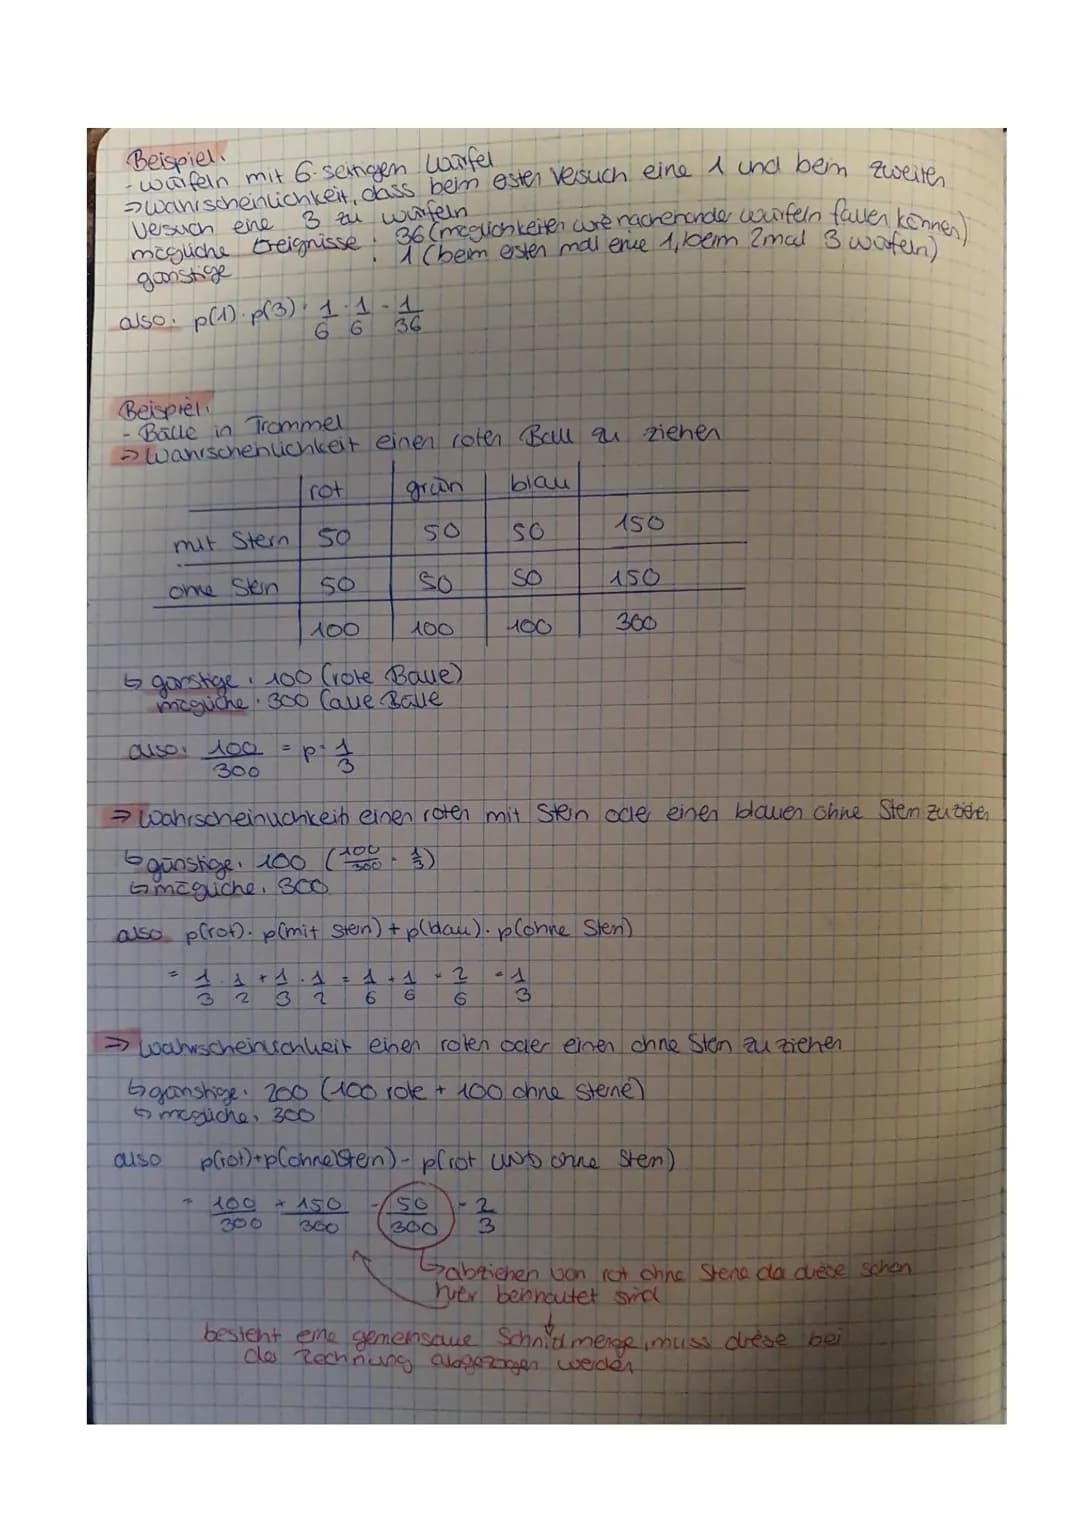 Beispiel:
- würfeln mit 6-seitigem Würfel
⇒ Wahrscheinlichkeit, dass beim ersten Versuch eine 1 und beim zweiten
Versuch eine 3 zu würfeln
mögliche Ereignisse : 36 (möglichkeiten wie nacheinander würfeln fallen können)
günstige : 1 (beim ersten mal eine 1, beim 2mal 3 würfeln)
also: p(1) · p(3) = 1/6 · 1/6 = 1/36
Beispiel:
- Bälle in Trommel
⇒ Wahrscheinlichkeit einen roten Ball zu ziehen
rot grün blau
mit Stern 50 50 50 150
ohne Stern 50 50 50 150
100 100 100 300
↳ günstige : 100 (rote Bälle)
mögliche : 300 (alle Bälle
also: 100/300 = p = 1/3
⇒ Wahrscheinlichkeit einen roten mit Stern oder einen blauen ohne Stern zu ziehen
↳ günstige: 100 (100/300 = 1/3)
↳ mögliche: 300
also p(rot) · p(mit Stern) + p(blau) · p(ohne Stern)
= 1/3 · 1/2 + 1/3 · 1/2 = 1/6 + 1/6 = 2/6 = 1/3
⇒ Wahrscheinlichkeit einen roten oder einen ohne Stern zu ziehen
↳ günstige: 200 (100 rote + 100 ohne Sterne)
↳ mögliche: 300
also p(rot) + p(ohne Stern) - p(rot UND ohne Stern)
= 100/300 + 150/300 - 50/300 = 2/3
↳ abziehen von rot ohne Sterne da diese schon
hier beinhaltet sind
besteht eine gemeinsame Schnittmenge, muss diese bei
der Rechnung abgezogen werden